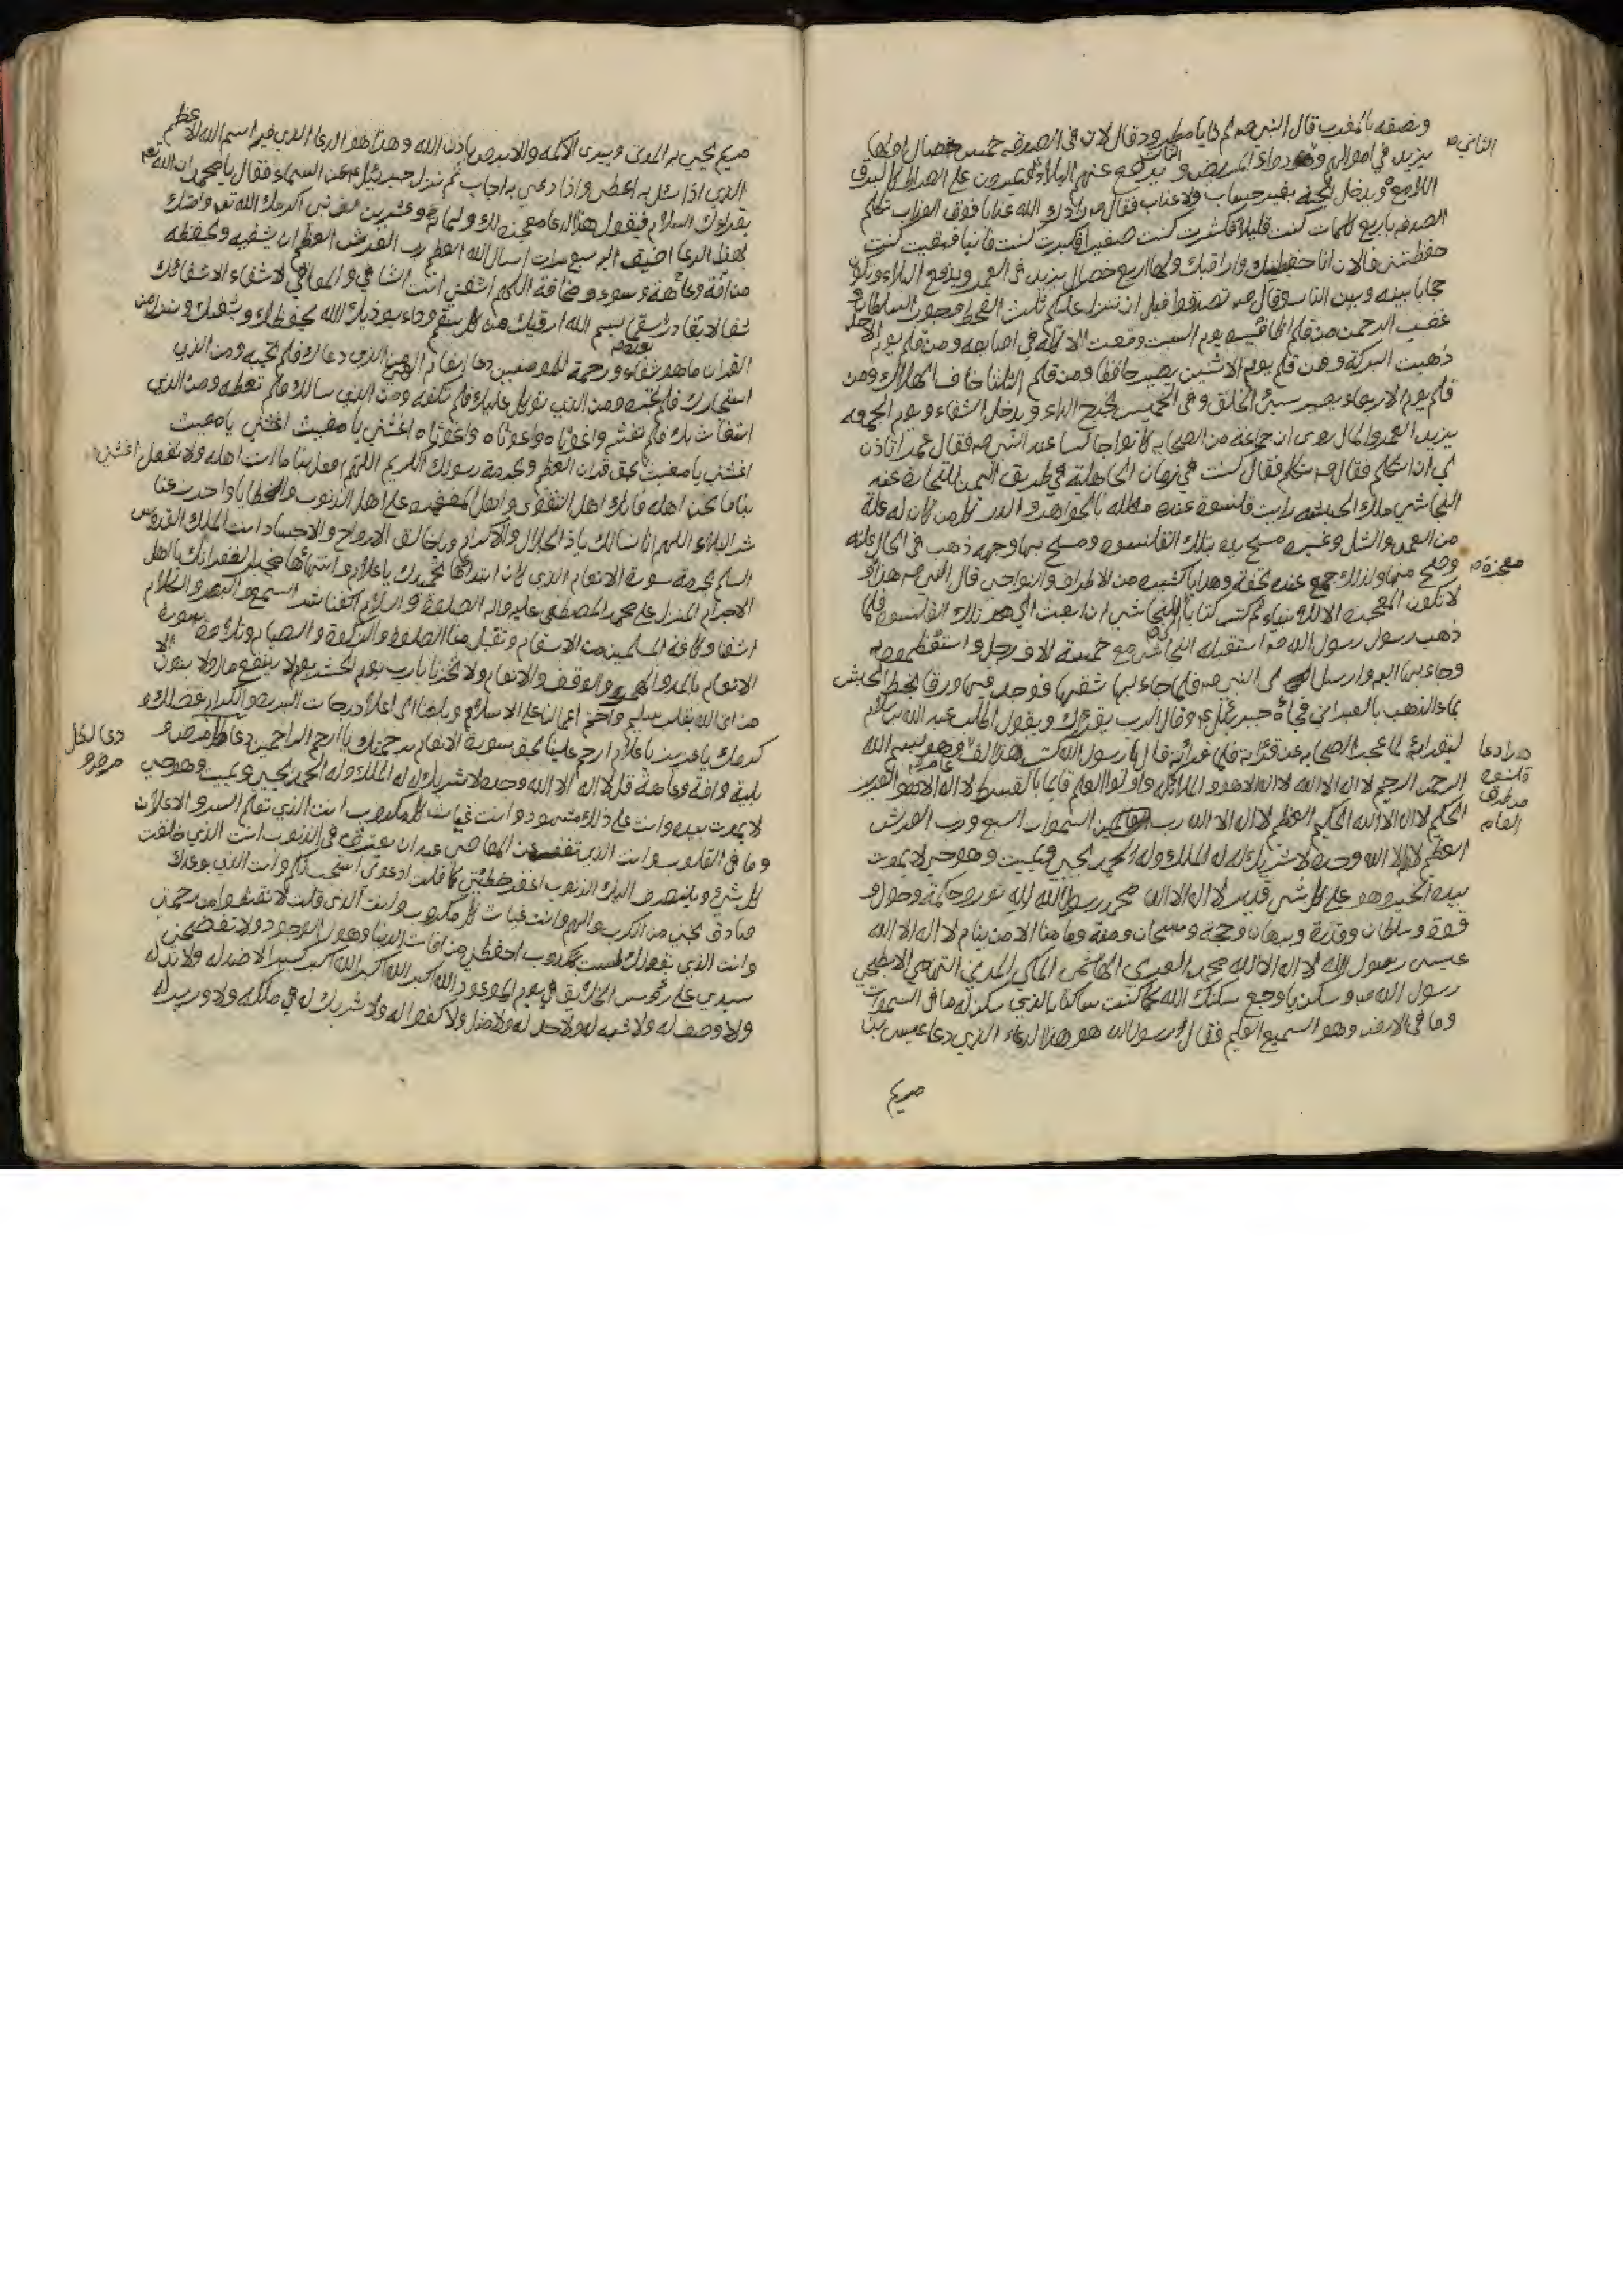 ونصفه بالمغرب قال النبي صم ثم قال لان في الصدقة خمس خصال اولها
الثاني
يزيد في اموالهم وهو دواء المريض و يدفع عنهم البلاء يمرون على الصراط كالبرق
الثالث
اللامع ويدخل الجنة بغير حساب ولا عذاب فقال صم زادك الله عذابا فوق العذاب تكلم
الصدقة باربع كلمات كنت قليلا فكثرت كنت صغيرا فكبرت كنت فانيا فبقيت كنت
حفظتني فالان انا حفظتك واراقبك ولها اربع خصال يزيد في العمر ويدفع البلاء وتكون
حجابا بينه وبين النار وقال صم تصدقوا قبل ان تنزل عليكم ثلث القحط وجور السلطان و
غضب الرحمن من قلم اظافيره يوم السبت وقعت الاكلة في اصابعه ومن قلم يوم الاحد
ذهبت البركة ومن قلم يوم الاثنين يصير حافظا ومن قلم الثلثا خاف الهلاك ومن
قلم يوم الاربعاء يصير سيئ الخلق وفي الخميس يخرج الداء ويدخل الشفاء ويوم الجمعة
يزيد العمر والمال روى ان جماعة من الصحابه كانوا جالسا عند النبي صم فقال عمر اتاذن
لي ان اتكلم فقال صم تكلم فقال كنت في زمان الجاهلية في طريق اليمن للتجارة عند
النجاشي ملك الحبشه رايت قلنسوة عنده مكلله بالجواهر والدر كل من كان له علة
من العمى والشل وغيره مسح يده بتلك القلنسوه ومسح بها وجهه ذهب في الحال علته
وصح منها ولذلك جمع عنده تحفة وهدايا كثيره من الاطراف والنواحي قال النبي صم هذا و
معجزة
لا تكون المعجزة الا للانبياء ثم كتب كتابا للنجاشي ان ابعث الي تلك القلنسوه فلما
ذهب رسول رسول الله صم استقبله النجاشي مع خمسة الاف رجل واستعظموه
وجاء بها اليه وارسل الى النبي صم فلما جاء بها شقها فوجد فيها ورقا بخط الحبش
بماء الذهب بالعبراني فجاءه جبرئيل ع وقال الرب يقرئك ويقول اطلب عبد الله بن سلام
ليقرأه لما عجز الصحابه عن قرائته فلما قرأته قال يا رسول الله كتب هذا الف وهو بسم الله
هذا دعا
قلنسوه
من طرق
العام
الرحمن الرحيم لا اله الا الله لا اله الا هو والملائكة واولوا العلم قائما بالقسط لا اله الا هو العزيز
الحكيم لا اله الا الله الحكيم العظيم لا اله الا الله رب السموات السبع ورب العرش
العظيم لا اله الا الله وحده لا شريك له له الملك وله الحمد يحيي ويميت وهو حي لا يموت
بيده الخير وهو على كل شي قدير لا اله الا الله محمد رسول الله لله نور وحكمة وحول و
قوة وسلطان وقدرة وبرهان وحجة ومنة وما هنا الا من ينام لا اله الا الله
عيسى رسول الله لا اله الا الله محمد العربي الهاشمي المكي المدني التهامي الابطحي
رسول الله صم وسكن يا وجع سكنتك الله كما كنت ساكنا بالذي سكن له ما في السموات
وما في الارض وهو السميع العليم فقال يا رسول الله هو هذا الدعاء الذي دعا عيسى بن
مريم
مريم يحيي به الموتى ويبرئ الاكمه والابرص باذن الله وهذا هو الدعا الذي فيه اسم الله الاعظم
الذي اذا سئل به اعطى واذا دعي به اجاب ثم نزل جبرئيل ع من السماء فقال يا محمد ان الله تعم
يقرئك السلام فيقول هذا الدعا معجزة لك ولمائة وعشرين الف نبي اكرمك الله تعم وامتك
بهذا الدعا اضيف اليه سبع مرات اسأل الله العظيم رب العرش العظيم ان يشفيه ويحفظه
من آفة وعاهة وسوء ومخافة اللهم اشفني انت الشافي والمعافي لا شفاء الا شفائك
شفا لا يغادر سقما بسم الله ارقيك من كل سقم وداء يوذيك الله يحفظك ويشفيك وننزل من
القران ما هو شفاء ورحمة للمومنين دعا انعام الهي من الذي دعاك فلم تجبه ومن الذي
استجارك فلم تجره ومن الذي توكل عليك فلم تكفه ومن الذي سالك فلم تعطه ومن الذي
استغاث بك فلم تغثه واغوثاه واغوثاه واغوثاه اغثني يا مغيث اغثني يا مغيث
اغثني يا مغيث بحق قران العظيم وبحرمة رسولك الكريم اللهم افعل بنا ما انت اهله ولا تفعل
بنا ما نحن اهله فانك اهل التقوى واهل المغفرة على اهل الذنوب والخطايا واصرف عنا
شر البلاء اللهم انا نسالك يا ذا الجلال والاكرام ويا خالق الارواح والاجساد انت الملك القدوس
السلام بحرمة سورة الانعام الذي كان ابتدائها بحمدك يا علام وانتهائها لغفرانك يا اهل
الاجرام المنزل على محمد المصطفى عليه واله الصلوة والسلام اكفنا شر السمع والبصر والكلام
اشفنا وكافة المسلمين من الاسقام وتقبل منا الصلوة والزكوة والصيام سورة
الانعام والانعام ولا تخزنا يا رب يوم الحشر يوم لا ينفع مال ولا بنون الا
من اتى الله بقلب سليم واختم اعمالنا على الاسلام وبلغنا الى اعلا درجات البررة والكرام بفضلك و
كرمك يا عزيز يا علام ارحم علينا بحق سورة الانعام برحمتك يا ارحم الراحمين دعا كل مرض و
دعا لكل
مرض و
بلية وافة وعاهة قل لا اله الا الله وحده لا شريك له له الملك وله الحمد يحيي ويميت وهو حي
لا يموت بيده وانت على ذلك شهود وانت غياث كل مكروب انت الذي تعلم السر والاعلان
وما في القلوب وانت الذي تغفر من المعاصي عبدا ان يعترف في الذنوب انت الذي خلقت
كل شيء وينصرف اليك الذنوب اغفر خطيئتي كما قلت ادعوني استجب لكم وانت الذي بوعدك
صادق نجني من الكرب والهم وانت غياث كل مكروب وانت الذي قلت لا تقنطوا من رحمتي
وانت الذي بقولك لست بكذوب احفظني من افات الدنيا وهول الوجود ولا تفضحني
سيدي على رؤس الخلايق في يوم الموعود الله اكبر الله اكبر الله اكبر كبيرا لا ضد له ولا ند له
ولا وصف له ولا شبه له ولا حد له ولا مثل ولا كفوا له ولا شريك له في ملكه ولا وزير له